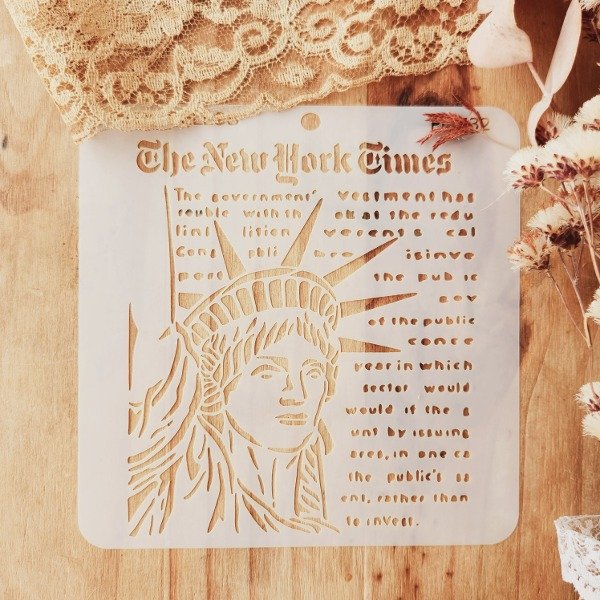 The New York Times
The government' vestment has
rouble with th ok at the redu
finl lition verents cal
Cong pbli isinve
pers the public
gov
of the public
conce
year in which
sector would
would if the g
unt by issuing
ares, in one ca
the public's sa
ent, rather than
to invest.